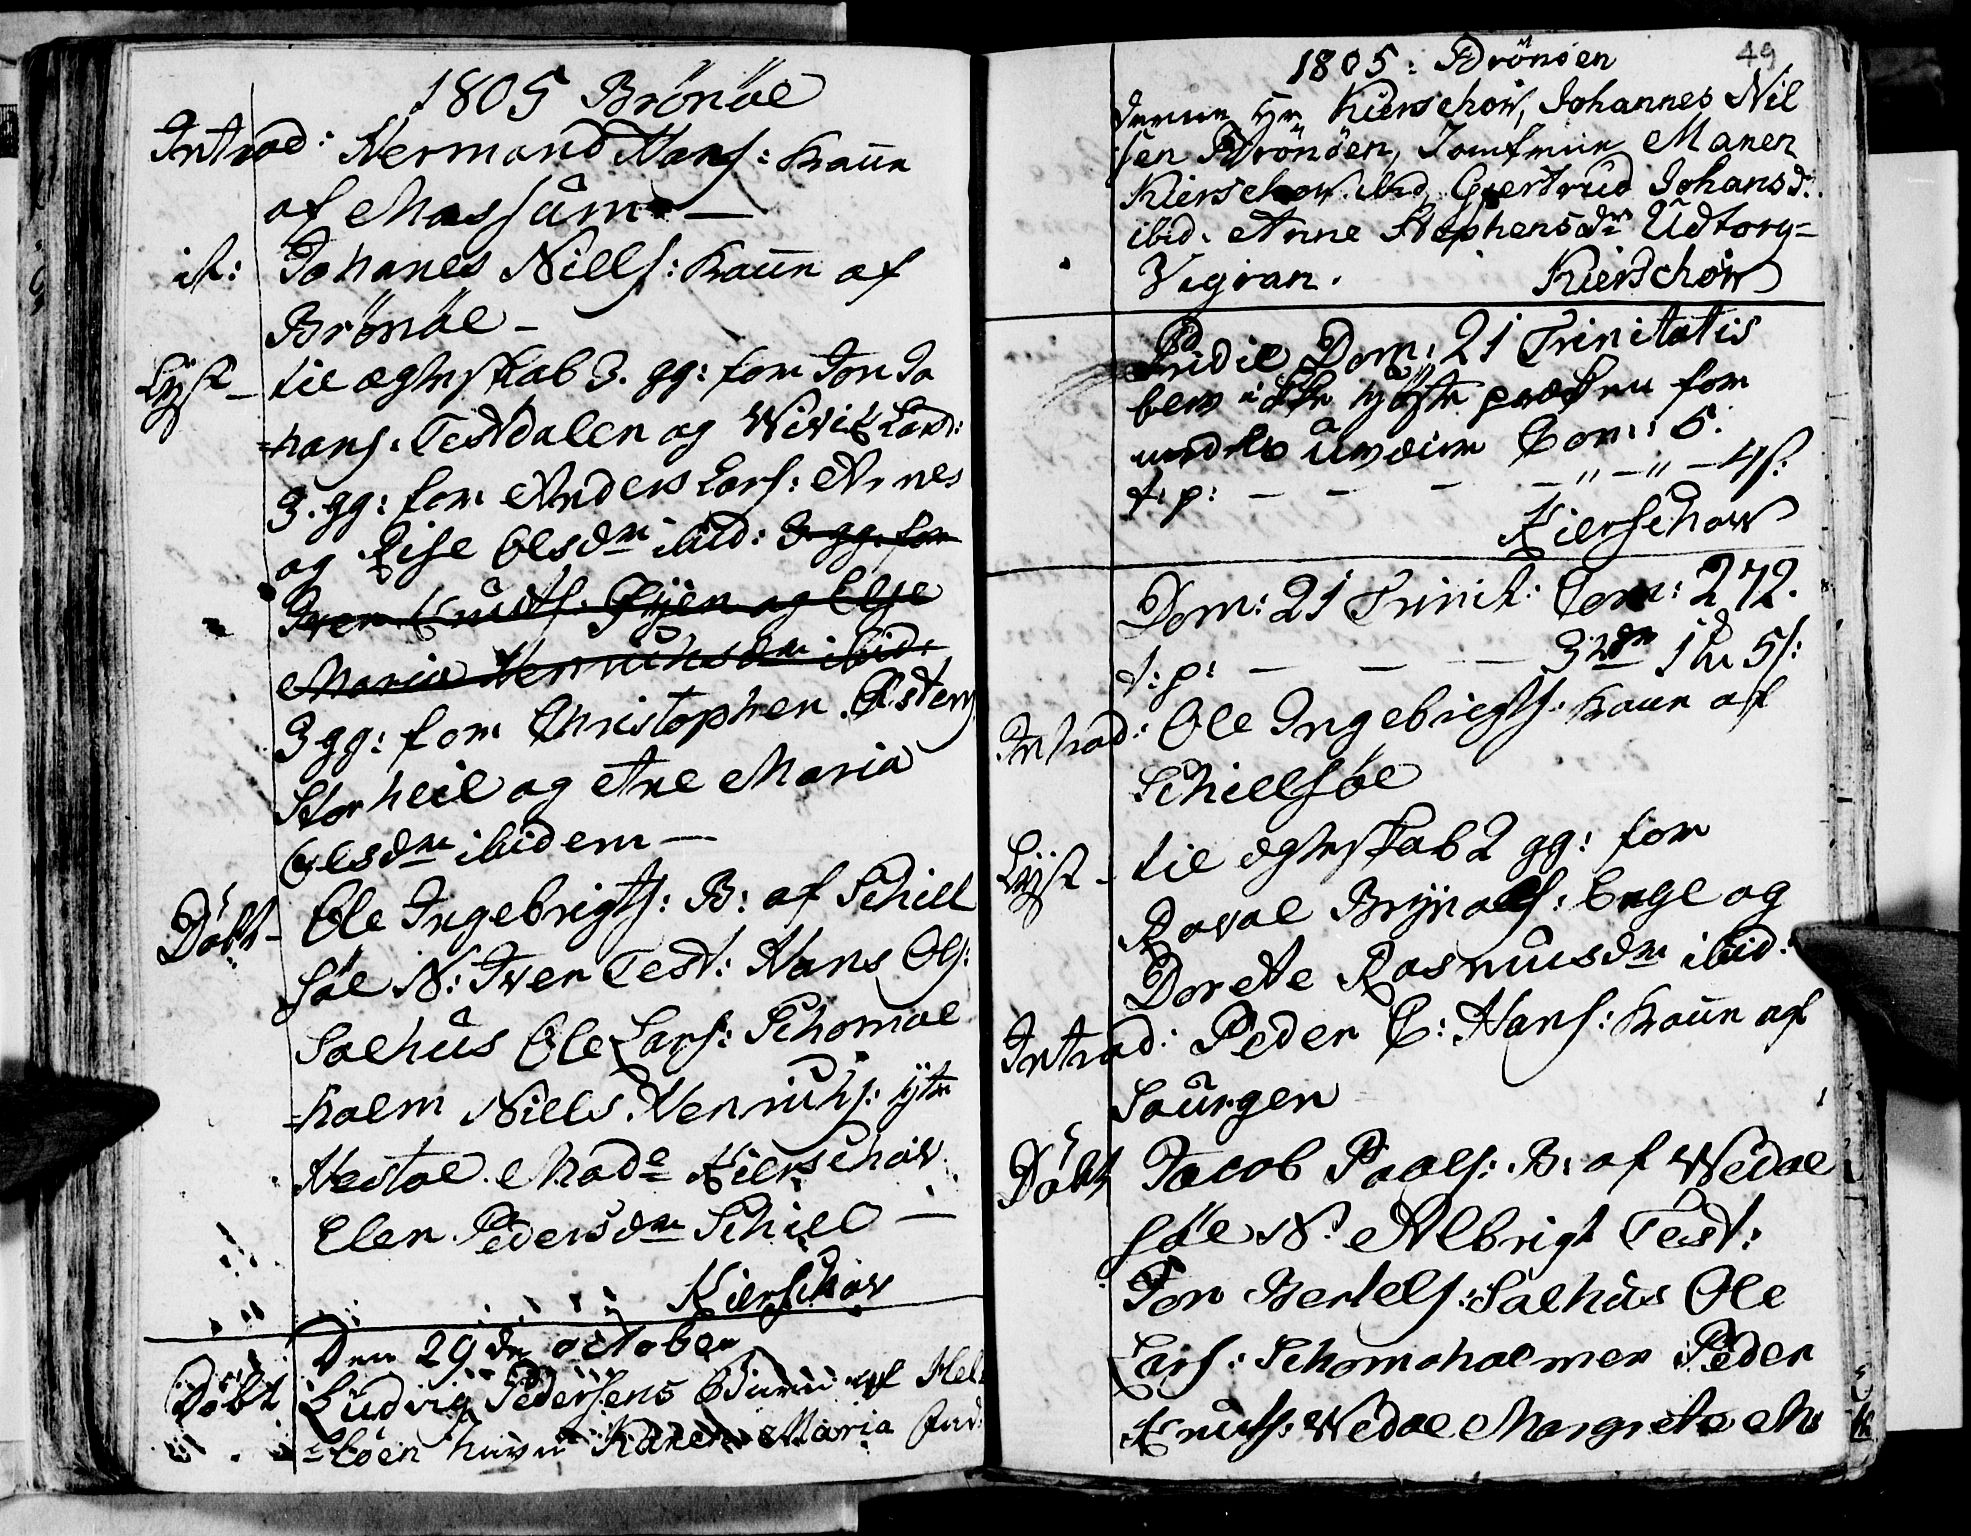 1805 Brönöe
Introd: Hermand Hans: Kaun
af Massum —
it: Johanes Niells: Kaun af
Brönöe —
Lyst — til ægteskab 3. gg: for Jon Jo
=hans: Testdalen og Wivik Lars:
3. gg: for Anders Lars: Arnes
og Lise Olsdr ibid: 3 gg. for
Iver Knuds: Öyen og Else
Maria Henrichsdr ibid:
3 gg: for Christopher Östens
Storheil og Ane Maria
Olsdr ibidem —
Döbt — Ole Ingebrigts: B: af Schiell
söe N: Iver Test: Hans Ols:
Salhus Ole Lars: Schomoe
=holm Niells Henrichs: ytr
Mad. Kierschow
Elen Pedersdr Schiel —
Kierschow
Den 29de october
Döbt Ludvig Pedersens Barn af Hel
=löen Karen Maria
1805: Brönöen 49
Kierschow, Johannes Nil
sen Brönöen, Jomfrue Maren
Kierschow ibid, Giertrud Johansd:
ibid. Anne Stephensdr Udtorg=
Vegran. Kierschow
Pridie Dom: 21 Trinitatis
blev ikke for
Com: 6.
t: p: — — — — " — " — 4 s:
Kierschow
Dom: 21 Trinit: Com: 272.
t: p: — — — 3 rdr 1 5 s:
Introd: Ole Ingebrigts: Kaun af
Schiellsöe
Lyst — til ægteskab 2 gg: for
Roval Brynals: Enge og
Dorete Rasmusdr ibid:
Introd: Peder C: Hans: Kaun af
Sourgen
Döbt Jacob Poels: B: af Wedoe
söe N: Albrigt Test:
Jon Bertels: Salhus Ole
Lars: Schomoholmen Peder
Knuds: Wedoe Margrete M